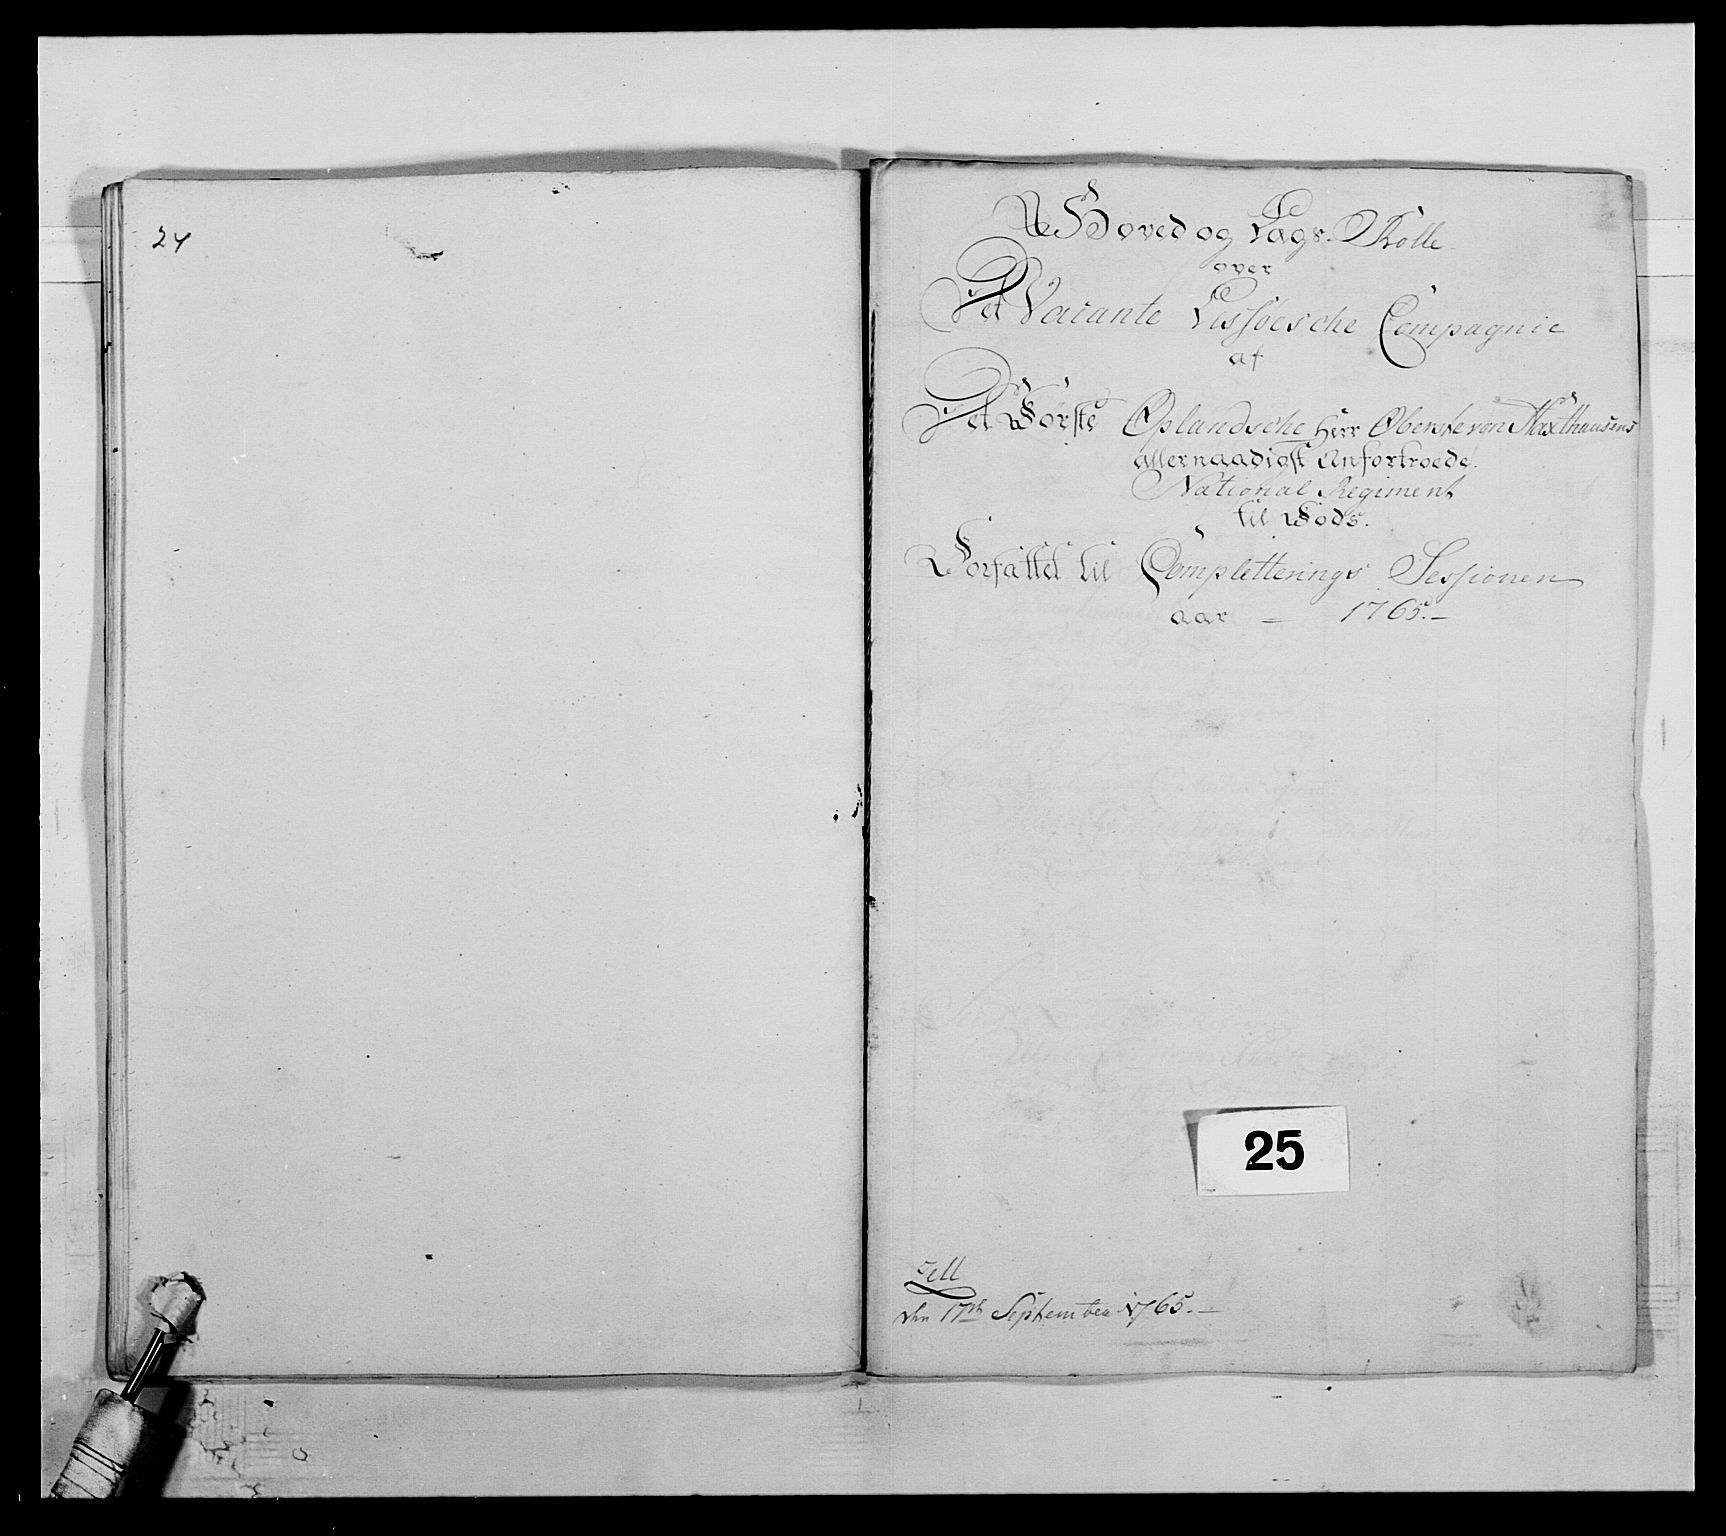 24
Hoved og Lags-Rolle
over
Det Vacante Lessöesche Compagnie
af
Det Förste Oplandsche Herr Oberste von Haxthausens
allernaadigst Anfortroede
National Regiment
til Fods.
Forfattet til Completterings Sessionen
aar — 1765.—
25
Zell
den 17de September 1765.—